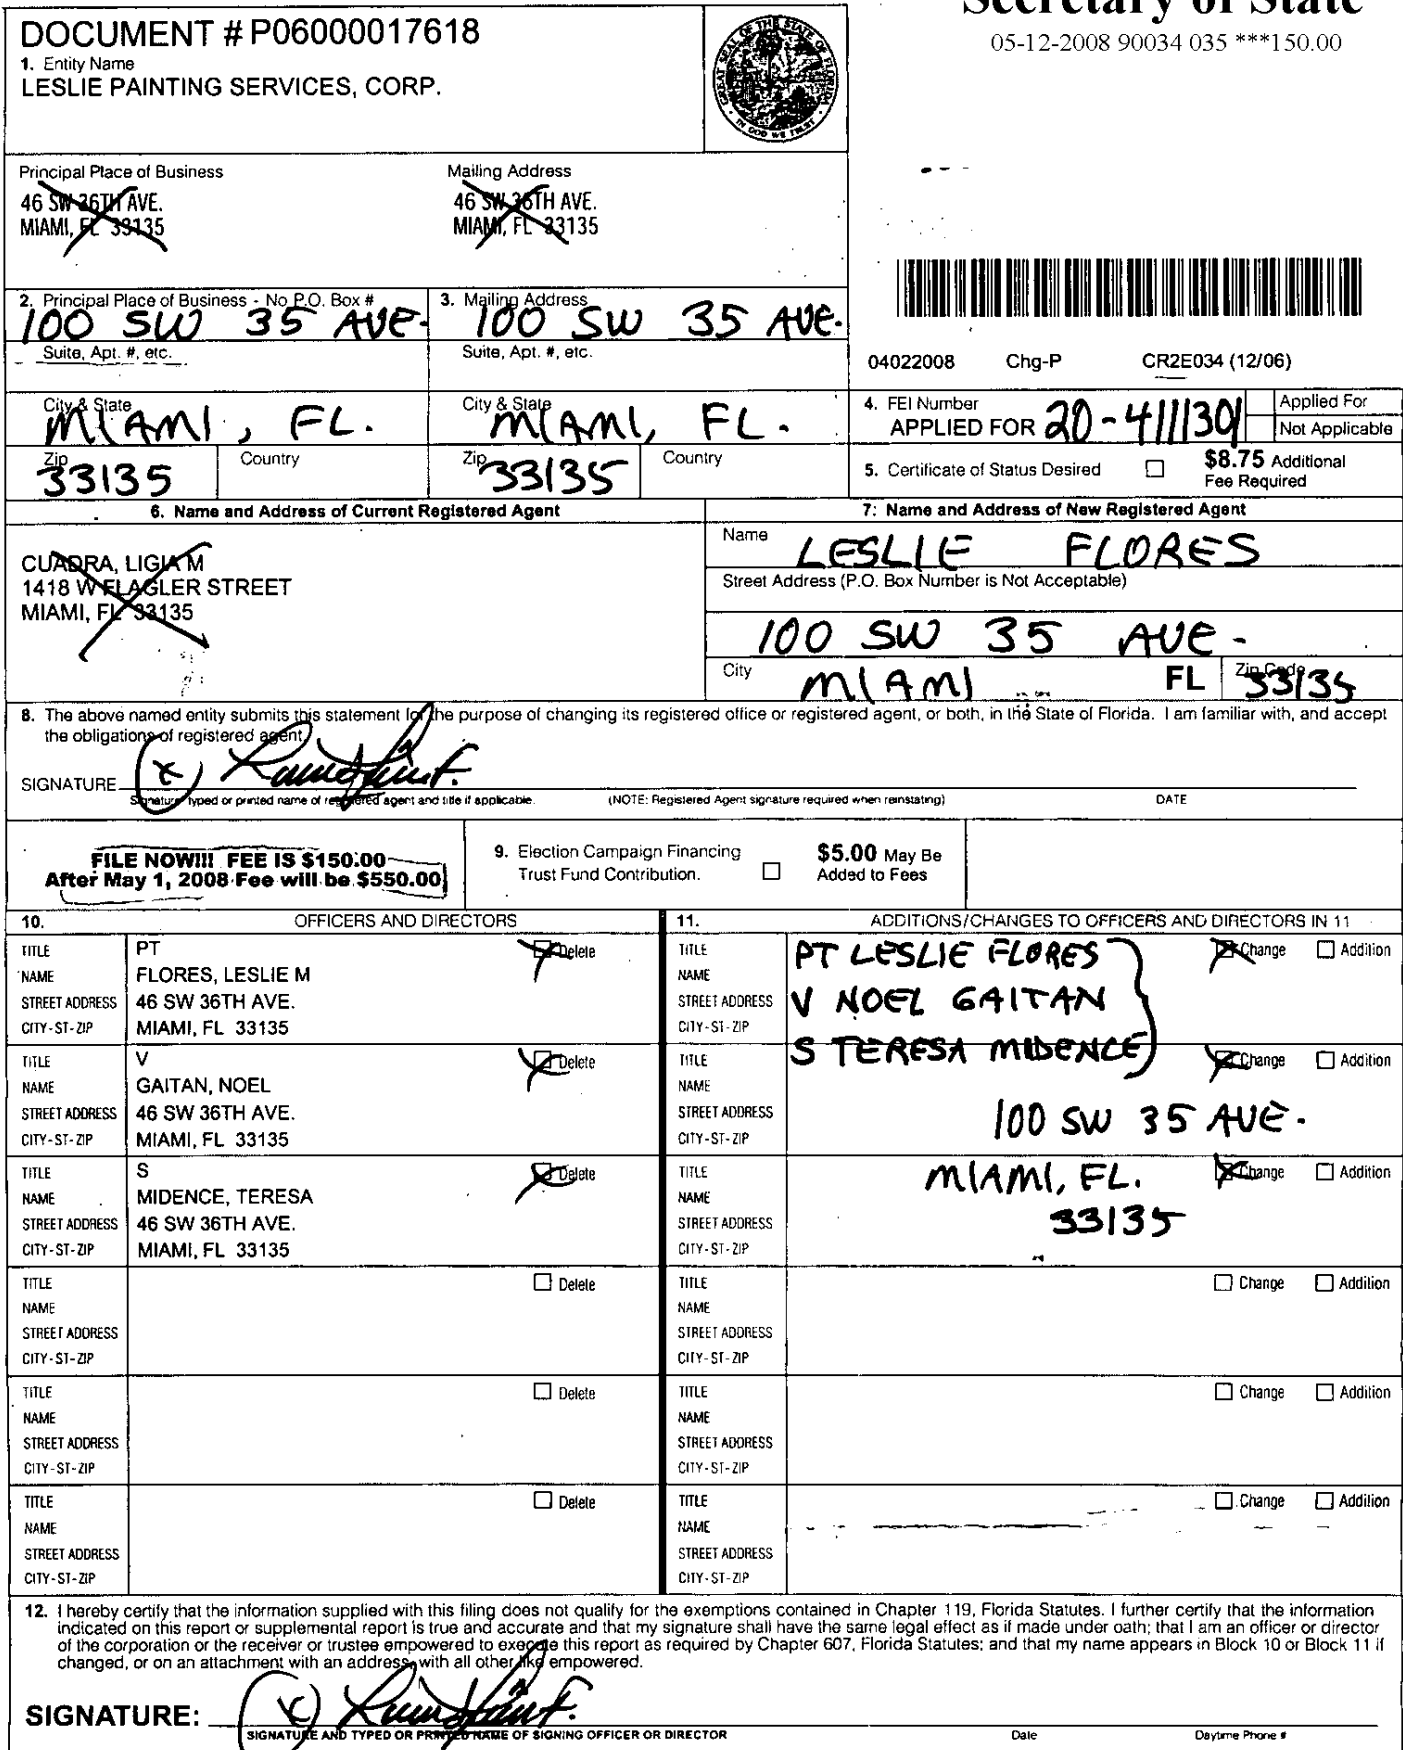 Secretary of State
05-12-2008 90034 035 ***150.00
DOCUMENT # P06000017618
1. Entity Name
LESLIE PAINTING SERVICES, CORP.
GREAT SEAL OF THE STATE OF FLORIDA
IN GOD WE TRUST
Principal Place of Business
46 SW 36TH AVE.
MIAMI, FL 33135
Mailing Address
46 SW 36TH AVE.
MIAMI, FL 33135
2. Principal Place of Business - No P.O. Box #
100 SW 35 AVE.
Suite, Apt. #, etc.
City & State
MIAMI, FL.
Zip
33135
Country
3. Mailing Address
100 SW 35 AVE.
Suite, Apt. #, etc.
City & State
MIAMI, FL.
Zip
33135
Country
04022008 Chg-P CR2E034 (12/06)
4. FEI Number
APPLIED FOR 20-4111301
Applied For
Not Applicable
5. Certificate of Status Desired
$8.75 Additional
Fee Required
6. Name and Address of Current Registered Agent
CUADRA, LIGIA M
1418 W FLAGLER STREET
MIAMI, FL 33135
7: Name and Address of New Registered Agent
Name
LESLIE FLORES
Street Address (P.O. Box Number is Not Acceptable)
100 SW 35 AVE.
City
MIAMI
FL
Zip Code
33135
8. The above named entity submits this statement for the purpose of changing its registered office or registered agent, or both, in the State of Florida. I am familiar with, and accept
the obligations of registered agent.
SIGNATURE
X
Signature, typed or printed name of registered agent and title if applicable.
(NOTE: Registered Agent signature required when reinstating)
DATE
FILE NOW!!! FEE IS $150.00
After May 1, 2008 Fee will be $550.00
9. Election Campaign Financing
Trust Fund Contribution.
$5.00 May Be
Added to Fees
10. OFFICERS AND DIRECTORS
11. ADDITIONS/CHANGES TO OFFICERS AND DIRECTORS IN 11
TITLE PT Delete
NAME FLORES, LESLIE M
STREET ADDRESS 46 SW 36TH AVE.
CITY-ST-ZIP MIAMI, FL 33135
TITLE PT LESLIE FLORES Change Addition
NAME
STREET ADDRESS V NOEL GAITAN
CITY-ST-ZIP
S TERESA MIDENCE
TITLE V Delete
NAME GAITAN, NOEL
STREET ADDRESS 46 SW 36TH AVE.
CITY-ST-ZIP MIAMI, FL 33135
TITLE Change Addition
NAME
STREET ADDRESS 100 SW 35 AVE.
CITY-ST-ZIP
TITLE S Delete
NAME MIDENCE, TERESA
STREET ADDRESS 46 SW 36TH AVE.
CITY-ST-ZIP MIAMI, FL 33135
TITLE MIAMI, FL. Change Addition
NAME
STREET ADDRESS 33135
CITY-ST-ZIP
TITLE Delete
NAME
STREET ADDRESS
CITY-ST-ZIP
TITLE Change Addition
NAME
STREET ADDRESS
CITY-ST-ZIP
TITLE Delete
NAME
STREET ADDRESS
CITY-ST-ZIP
TITLE Change Addition
NAME
STREET ADDRESS
CITY-ST-ZIP
TITLE Delete
NAME
STREET ADDRESS
CITY-ST-ZIP
TITLE Change Addition
NAME
STREET ADDRESS
CITY-ST-ZIP
12. I hereby certify that the information supplied with this filing does not qualify for the exemptions contained in Chapter 119, Florida Statutes. I further certify that the information
indicated on this report or supplemental report is true and accurate and that my signature shall have the same legal effect as if made under oath; that I am an officer or director
of the corporation or the receiver or trustee empowered to execute this report as required by Chapter 607, Florida Statutes; and that my name appears in Block 10 or Block 11 if
changed, or on an attachment with an address, with all other like empowered.
SIGNATURE:
X
SIGNATURE AND TYPED OR PRINTED NAME OF SIGNING OFFICER OR DIRECTOR
Date
Daytime Phone #